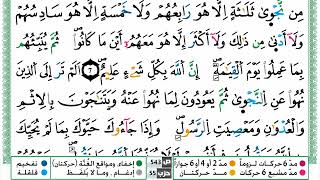 مِن نَّجْوَىٰ ثَلَٰثَةٍ إِلَّا هُوَ رَابِعُهُمْ وَلَا خَمْسَةٍ إِلَّا هُوَ سَادِسُهُمْ
وَلَآ أَدْنَىٰ مِن ذَٰلِكَ وَلَآ أَكْثَرَ إِلَّا هُوَ مَعَهُمْ أَيْنَ مَا كَانُوا۟ ۖ ثُمَّ يُنَبِّئُهُم
بِمَا عَمِلُوا۟ يَوْمَ ٱلْقِيَٰمَةِ ۚ إِنَّ ٱللَّهَ بِكُلِّ شَىْءٍ عَلِيمٌ ٧ أَلَمْ تَرَ إِلَى ٱلَّذِينَ
نُهُوا۟ عَنِ ٱلنَّجْوَىٰ ثُمَّ يَعُودُونَ لِمَا نُهُوا۟ عَنْهُ وَيَتَنَٰجَوْنَ بِٱلْإِثْمِ
وَٱلْعُدْوَٰنِ وَمَعْصِيَتِ ٱلرَّسُولِ وَإِذَا جَآءُوكَ حَيَّوْكَ بِمَا لَمْ يُحَيِّكَ
مدّ 6 حركات لزوماً مدّ 2 أو 4 أو 6 جوازاً ص 543 إخفاء، ومواقع الغُنَّة (حركتان) تفخيم
مدّ مشبع 6 حركات مدّ حركتان حزب 55 إدغام، وما لا يُلفَظ قلقلة